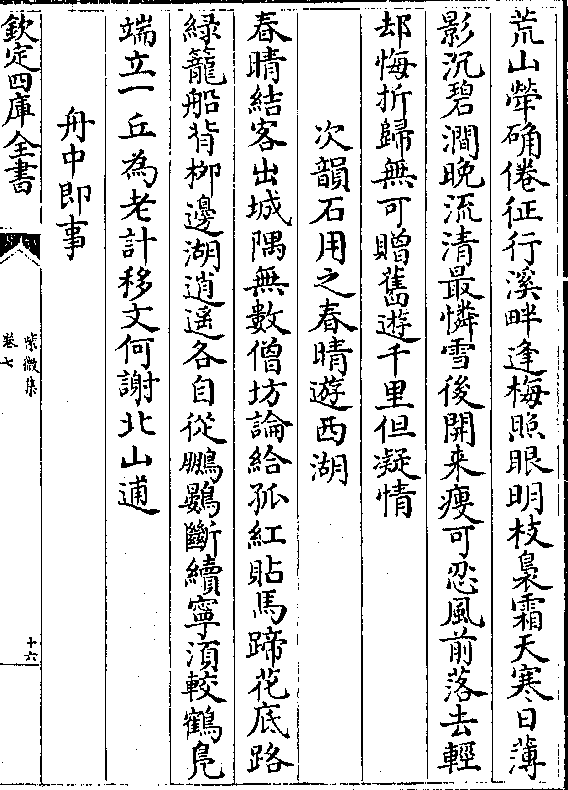 荒山犖确倦征行溪畔逢梅照眼明枝裊霜天寒日薄
影沉碧澗晚流清最憐雪後開来瘦可忍風前落去輕
却悔折歸無可贈舊遊千里但凝情
次韻石用之春晴遊西湖
春晴結客出城隅無數僧坊論給孤紅貼馬蹄花底路
緑籠船背柳邊湖逍遥各自從鵬鷃斷續寧須較鶴鳬
端立一丘為老計移文何謝北山逋
舟中即事
欽定四庫全書
紫微集
卷七
十六